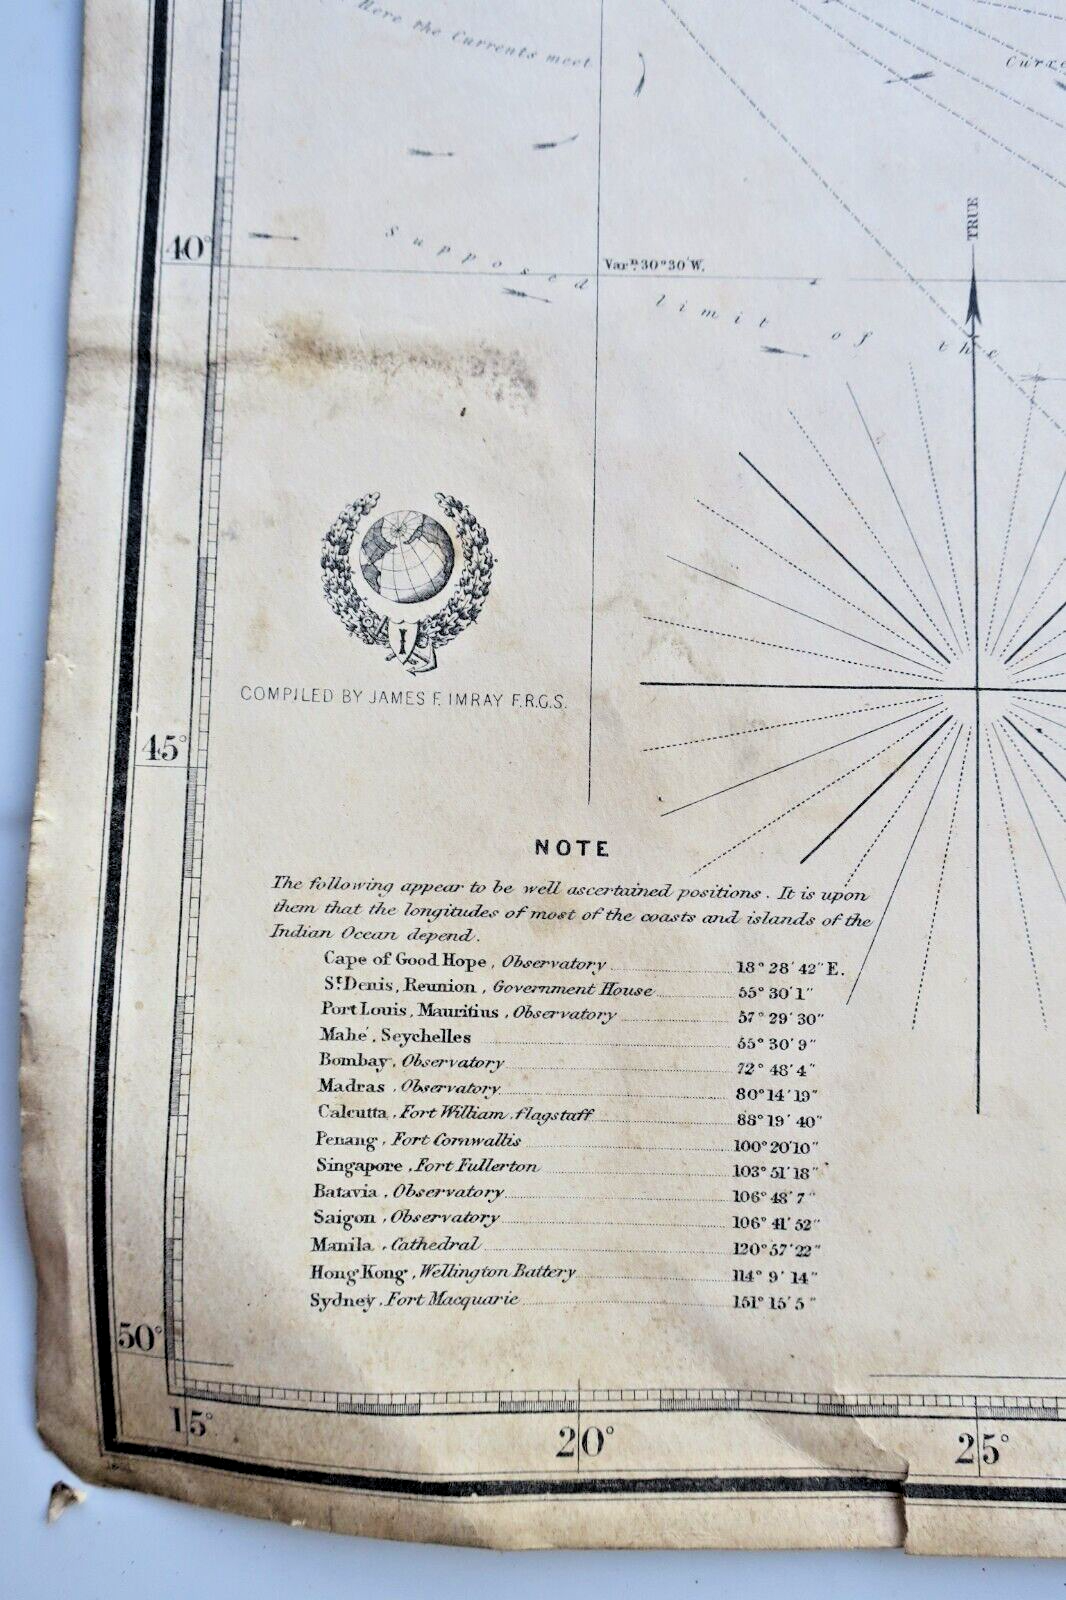 Here the Currents meet
Curre
TRUE
40°
Supposed limit of the
Varn. 30° 30' W.
I
COMPILED BY JAMES F. IMRAY F.R.G.S.
45°
NOTE
The following appear to be well ascertained positions. It is upon
them that the longitudes of most of the coasts and islands of the
Indian Ocean depend.
Cape of Good Hope, Observatory 18° 28' 42" E.
St. Denis, Reunion, Government House 55° 30' 1"
Port Louis, Mauritius, Observatory 57° 29' 30"
Mahé, Seychelles 55° 30' 9"
Bombay, Observatory 72° 48' 4"
Madras, Observatory 80° 14' 19"
Calcutta, Fort William flagstaff 88° 19' 40"
Penang, Fort Cornwallis 100° 20' 10"
Singapore, Fort Fullerton 103° 51' 18"
Batavia, Observatory 106° 48' 7"
Saigon, Observatory 106° 41' 52"
Manila, Cathedral 120° 57' 22"
Hong Kong, Wellington Battery 114° 9' 14"
Sydney, Fort Macquarie 151° 15' 5"
50°
15° 20° 25°